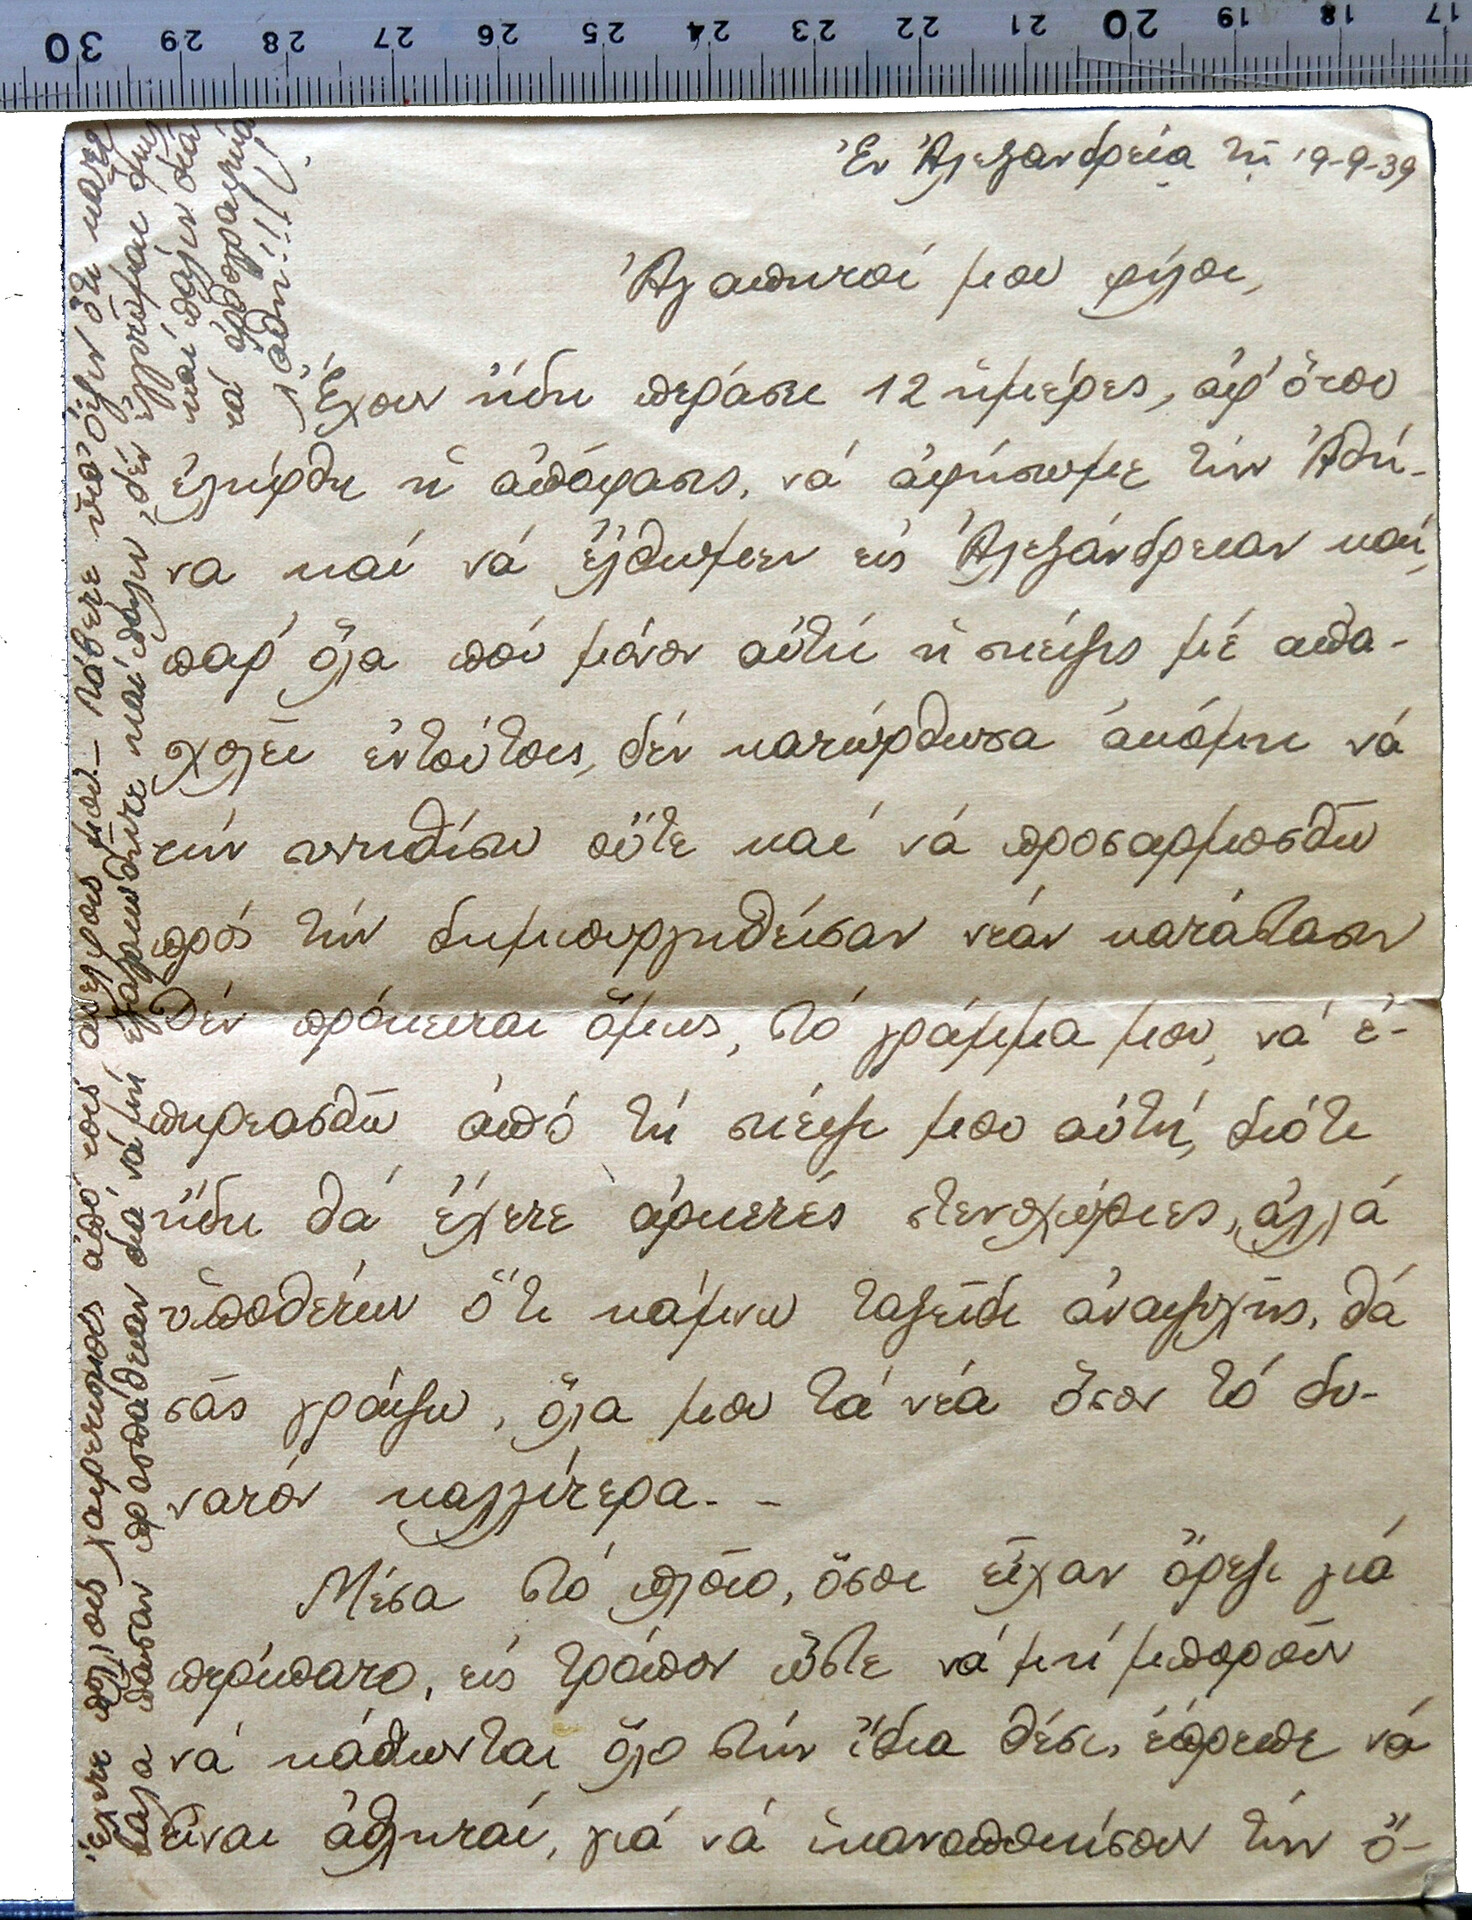 30 29 28 27 26 25 24 23 22 21 20 19 18 17
Ἐν Ἀλεξανδρείᾳ τῇ 19-9-39
Ἀγαπητοί μου φίλοι,
Ἔχουν ἤδη περάσει 12 ἡμέρες, ἀφ' ὅτου
ἐλήφθη ἡ ἀπόφασις, νά ἀφήσωμε τήν Ἀθή-
να καί νά ἔλθωμεν εἰς Ἀλεξάνδρειαν καί,
παρ' ὅλα πού μόνον αὐτή ἡ σκέψις μέ ἀπα-
χολεῖ ἐντούτοις, δέν κατώρθωσα ἀκόμη νά
τήν συνηθίσω οὔτε καί νά προσαρμοσθῶ
πρός τήν δημιουργηθεῖσαν νέαν κατάστασιν
Δέν πρόκειται ὅμως, στό γράμμα μου, νά ἐ-
πηρεασθῶ ἀπό τή σκέψι μου αὐτή, διότι
ἤδη θά ἔχετε ἀρκετές στενοχώριες, ἀλλά
ὑποθέτων ὅτι κάμνω ταξεῖδι ἀναψυχῆς, θά
σᾶς γράψω, ὅλα μου τά νέα ὅσον τό δυ-
νατόν καλλίτερα. -
Μέσα στό πλοῖο, ὅσοι εἶχαν ὄρεξι γιά
περίπατο, εἰς τρόπον ὥστε νά μή μποροῦν
νά κάθωνται ὅλο στήν ἴδια θέσι, ἔπρεπε νά
εἶναι ἀθληταί, γιά νά ἱκανοποιήσουν τήν ὄ-
ἔχετε πολλούς χαιρετισμούς ἀπό τούς ἀδελφούς μου. - Λάβετε ὑπ' ὄψιν ὅτι κατέ
βαλα πᾶσαν προσπάθειαν διά νά μή καί πάλιν, δέν ἐγγυῶμαι ὅμως
καί πάλιν διά
τά ὀρθογραφικά
λάθη!!!